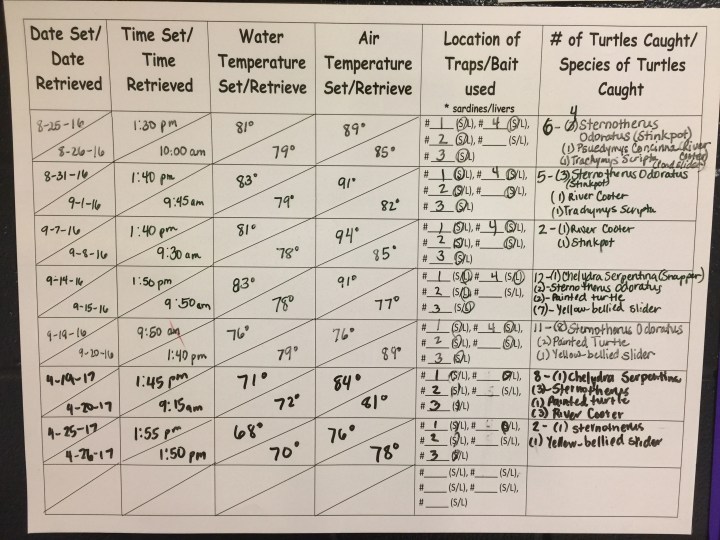 Date Set/ Date Retrieved
Time Set/ Time Retrieved
Water Temperature Set/Retrieve
Air Temperature Set/Retrieve
Location of Traps/Bait used
* sardines/livers
# of Turtles Caught/ Species of Turtles Caught
8-25-16 1:30 pm 81° 89° # 1 (S/L), # 4 (S/L),
8-26-16 10:00 am 79° 85° # 2 (S/L), # (S/L),
# 3 (S/L)
4
6 - Sternotherus
Odoratus (Stinkpot)
(1) Psuedymys Concinna (River Cooter)
(1) Trachymys Scripta
8-31-16 1:40 pm 83° 91° # 1 (S/L), # 4 (S/L),
9-1-16 9:45 am 79° 82° # 2 (S/L), # (S/L),
# 3 (S/L)
5 - (3) Sternotherus Odoratus
(Stinkpot)
(1) River Cooter
(1) Trachymys Scripta
9-7-16 1:40 pm 81° 94° # 1 (S/L), # 4 (S/L),
9-8-16 9:30 am 78° 85° # 2 (S/L), # (S/L),
# 3 (S/L)
2 - (1) River Cooter
(1) Stinkpot
9-14-16 1:50 pm 83° 91° # 1 (S/L), # 4 (S/L)
9-15-16 9:50 am 78° 77° # 2 (S/L), # (S/L),
# 3 (S/L)
12 - (1) Chelydra Serpentina (Snapper)
(2) - Sternotherus odoratus
(2) - Painted turtle
(7) - Yellow-bellied slider
9-19-16 9:50 am 76° 76° # 1 (S/L), # 4 (S/L),
9-20-16 1:40 pm 79° 89° # 2 (S/L), # (S/L),
# 3 (S/L)
11 - (8) Sternotherus Odoratus
(2) Painted Turtle
(1) Yellow-bellied slider
4-19-17 1:45 pm 71° 84° # 1 (S/L), # (S/L),
4-20-17 9:15am 72° 81° # 2 (S/L), # (S/L),
# 3 (S/L)
8 - (1) Chelydra Serpentina
(3) - Sternotherus
(1) Painted turtle
(3) River Cooter
4-25-17 1:55 pm 68° 76° # 1 (S/L), # (S/L),
4-26-17 1:50 pm 70° 78° # 2 (S/L), # (S/L),
# 3 (S/L)
2 - (1) sternotherus
(1) Yellow-bellied slider
# (S/L), # (S/L),
# (S/L), # (S/L),
# (S/L)